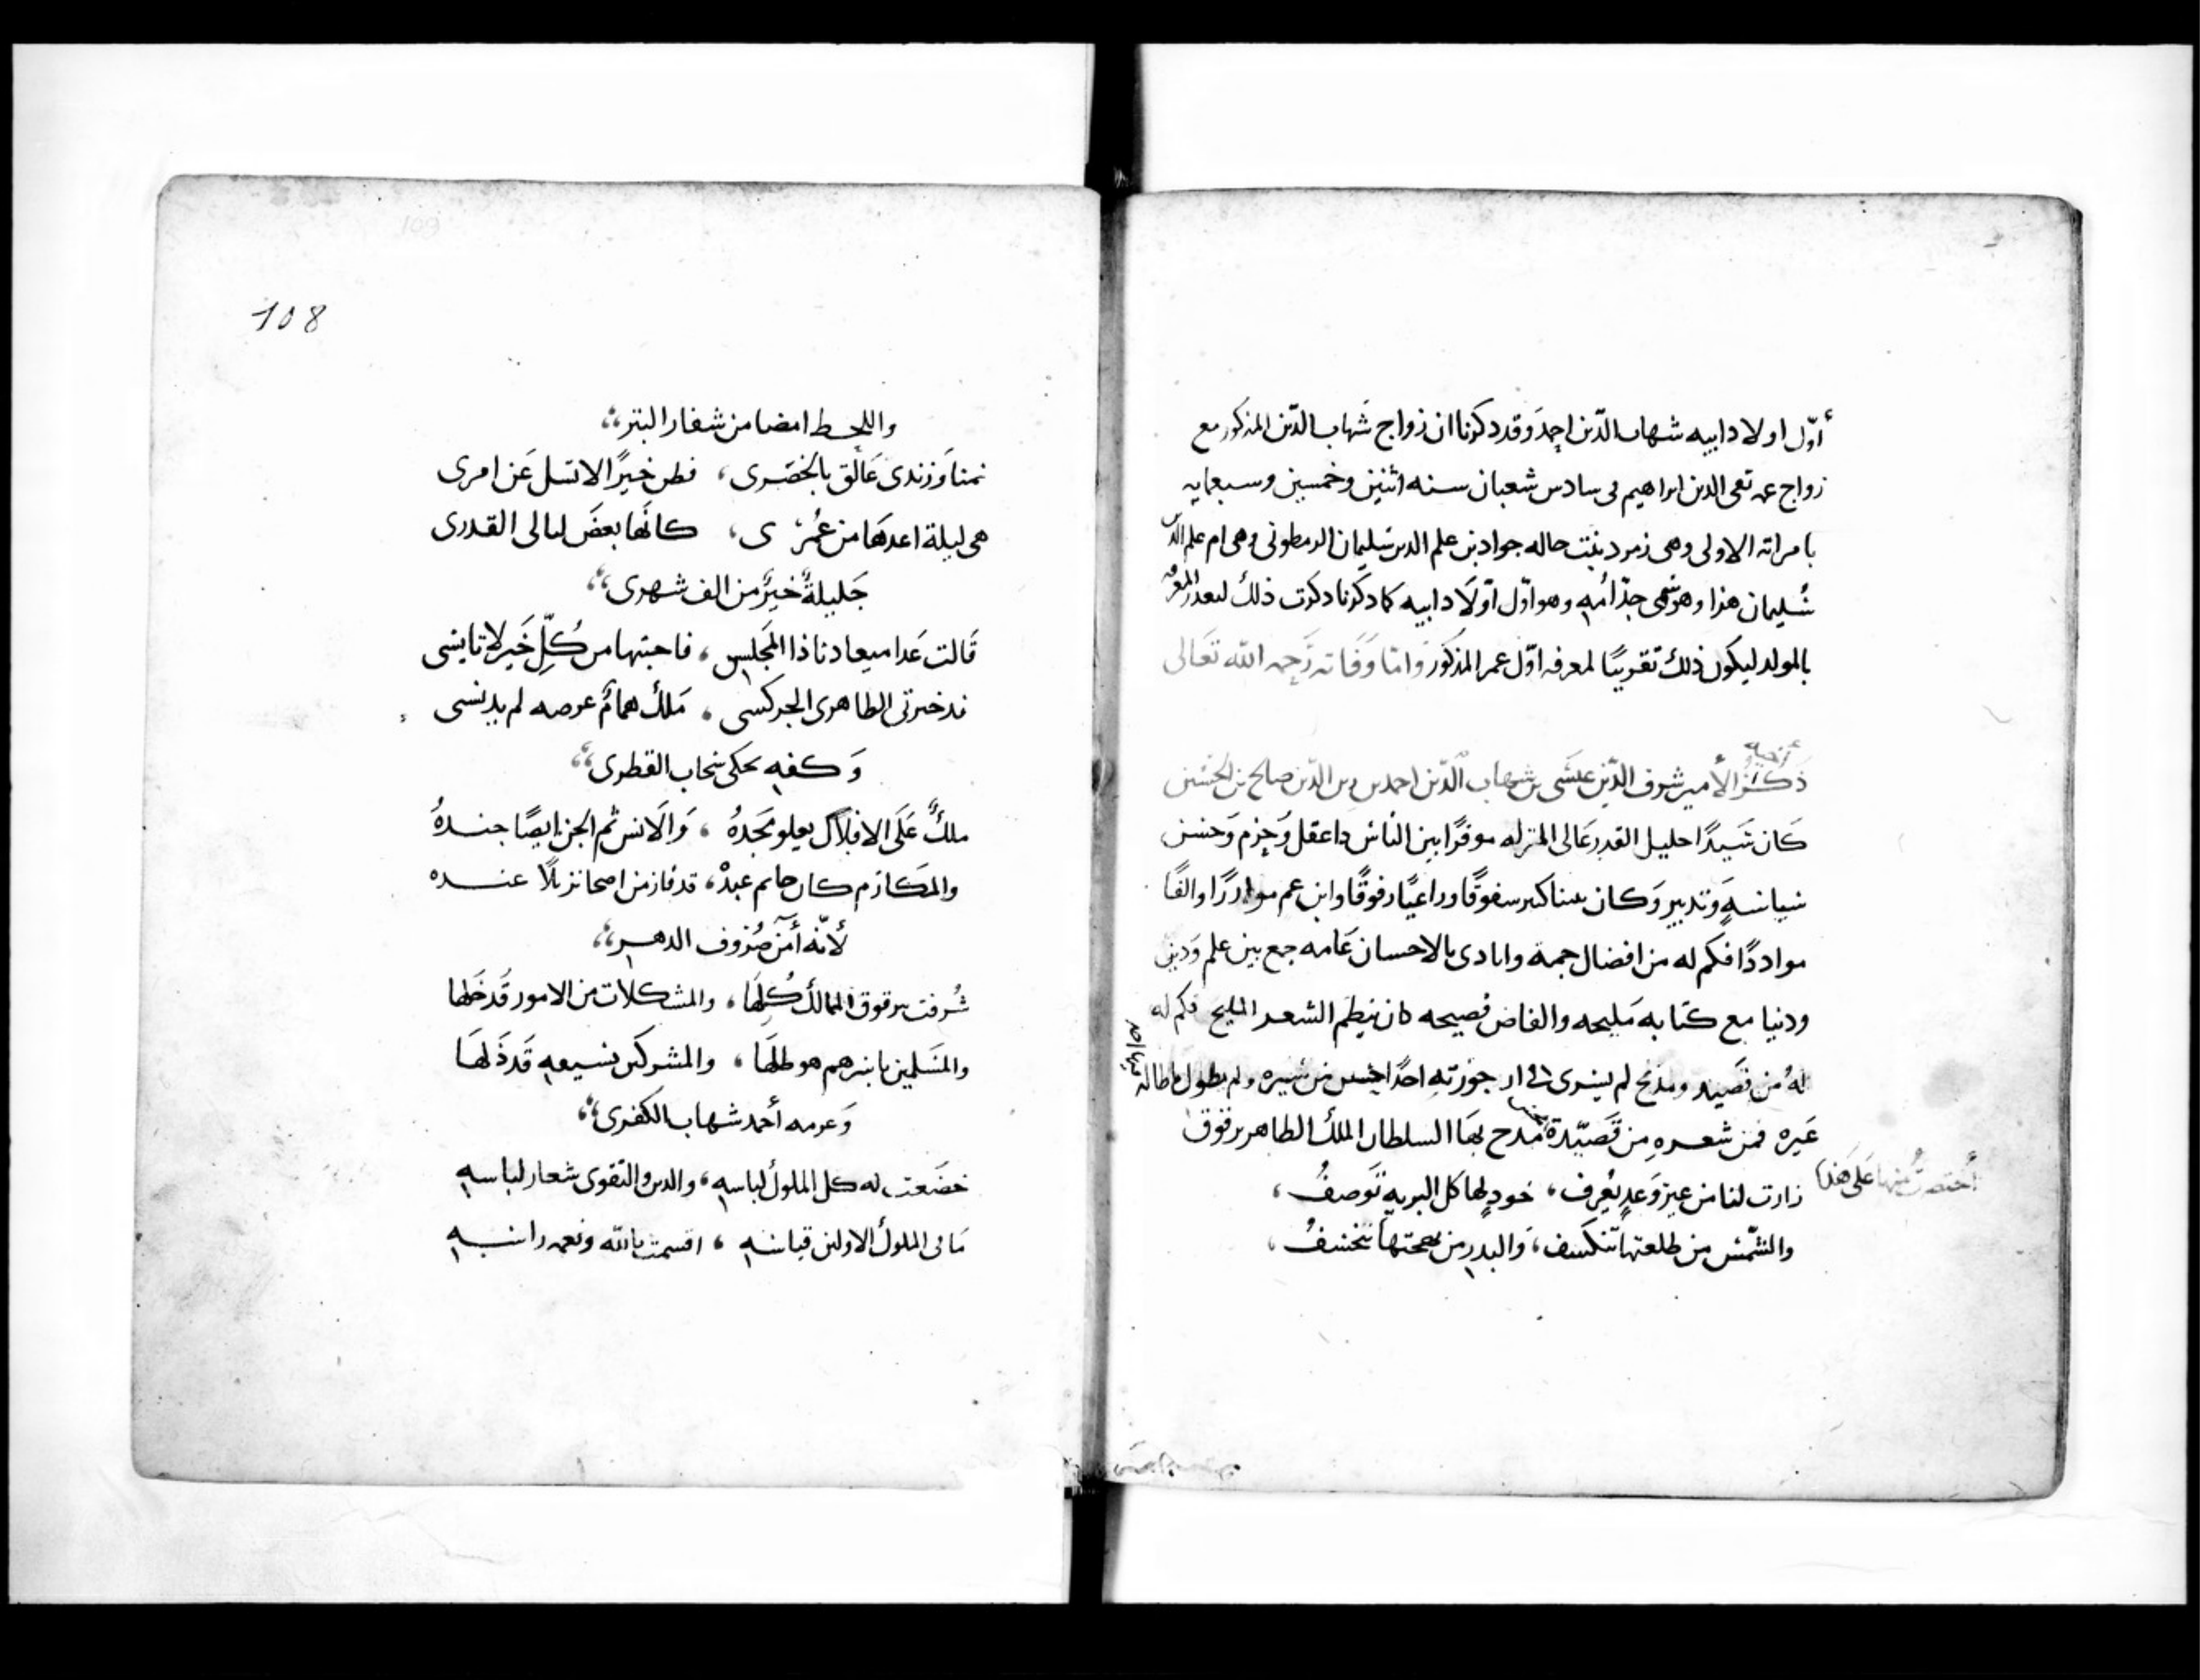 أوّل اولاد ابيه شهاب الدّين احمد وقد دكرنا ان زواج شهاب الدّين المذكور مع
زواج عمه تقي الدين ابراهيم في سادس شعبان سنه اثنين وخمسين وسبعمايه
بامراته الاولى وهي زمرد بنت خاله جواد بن علم الدين سليمان الرمطوني وهي ام علم الدين
سُليمان هذا وهو سَمي جدّ أمه وهو اوّل اوّلاد ابيه كما دكرنا دكرت ذلك لبعد المعرفه
بالمولد ليكون ذلك تقريبًا لمعرفه اوّل عمر المذكور وامّا وَفَاته رَحمه الله تعَالى
ذكر الأمير شرف الدّين عيسَى بن شهاب الدّين احمد بن زين الدّين صالح بن الحسَين
كَان سَيدًا جليل القدر عَالي المنزله موقرًا بين الناس دا عقل وَحزم وَحسن
سياسَةٍ وَتدبير وَكان
مواددًا فكم له من افضال جمة وايادى بالاحسان عَامه جمع بين علم وَدين
ودنيا مع كتابه مَليحه والفاض فصيحه كان ينظم الشعر المليح فكم له
لهُ من قصَيد ومدَيح لم يسرى في ارجوزته احدًا احسن من سَيره ولم يطول
غيره فمن شعره مِن قصَيدة مَدح بهَا السلطان الملك الظاهر برقوق
أختصرتُ منها عَلى هَذا
زارت لنا من غير وَعدٍ يُعرف، خودٍ لها كل البريه تَوصفُ،
والشّمس من طلعتها تنكسف، وَالبدر من بهجتها يَنخسفُ،
108
109
واللحظ امضا من شفار البتر
نمنا وَزندى عَالق بالخصَرى، فظن خيرًا لا تسل عَن امرى
هى ليلة اعدهَا من عُمرى، كانّها بعضَ ليالى القدرى
جَليلةٌ خيرٌ من الف شهرى
قَالت غَدا ميعادنا ذا المَجلس، فاجبتها من كُلّ خَير لا تايسى
مَلكٌ همامٌ عرضه لم يدنسى
وَكفه يحكى سحاب القطرى
ملكٌ عَلَى الافلاك يعلو مَجَدهُ، وَالانس ثم الجن ايضًا جندهُ
والمكَارم كان حاتم عبدْه، قد فاز من اضحا نزيلاً عنده
لأنّه أمنٌ صُرُوف الدهر
شُرفت برقوق الممالك كُلهَا، والمشكلات من الامور قَد حَلها
والمسَلمين هو ظلهَا، والمشركين بسيفه قَد ذَلهَا
وَعزمه أحمد شهاب الكفرى
خضَعت له كل الملوك لباسه، والدين والتقوى شعار لباسه
مَا فى الملوك الاولين قياسَه، اقسمت بالله ونعمه راسه